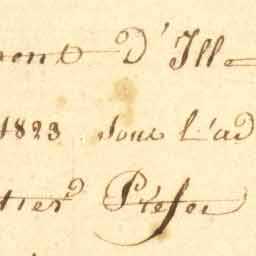 ment d'Ille
1823 sous l'ad
tier^d Préfet